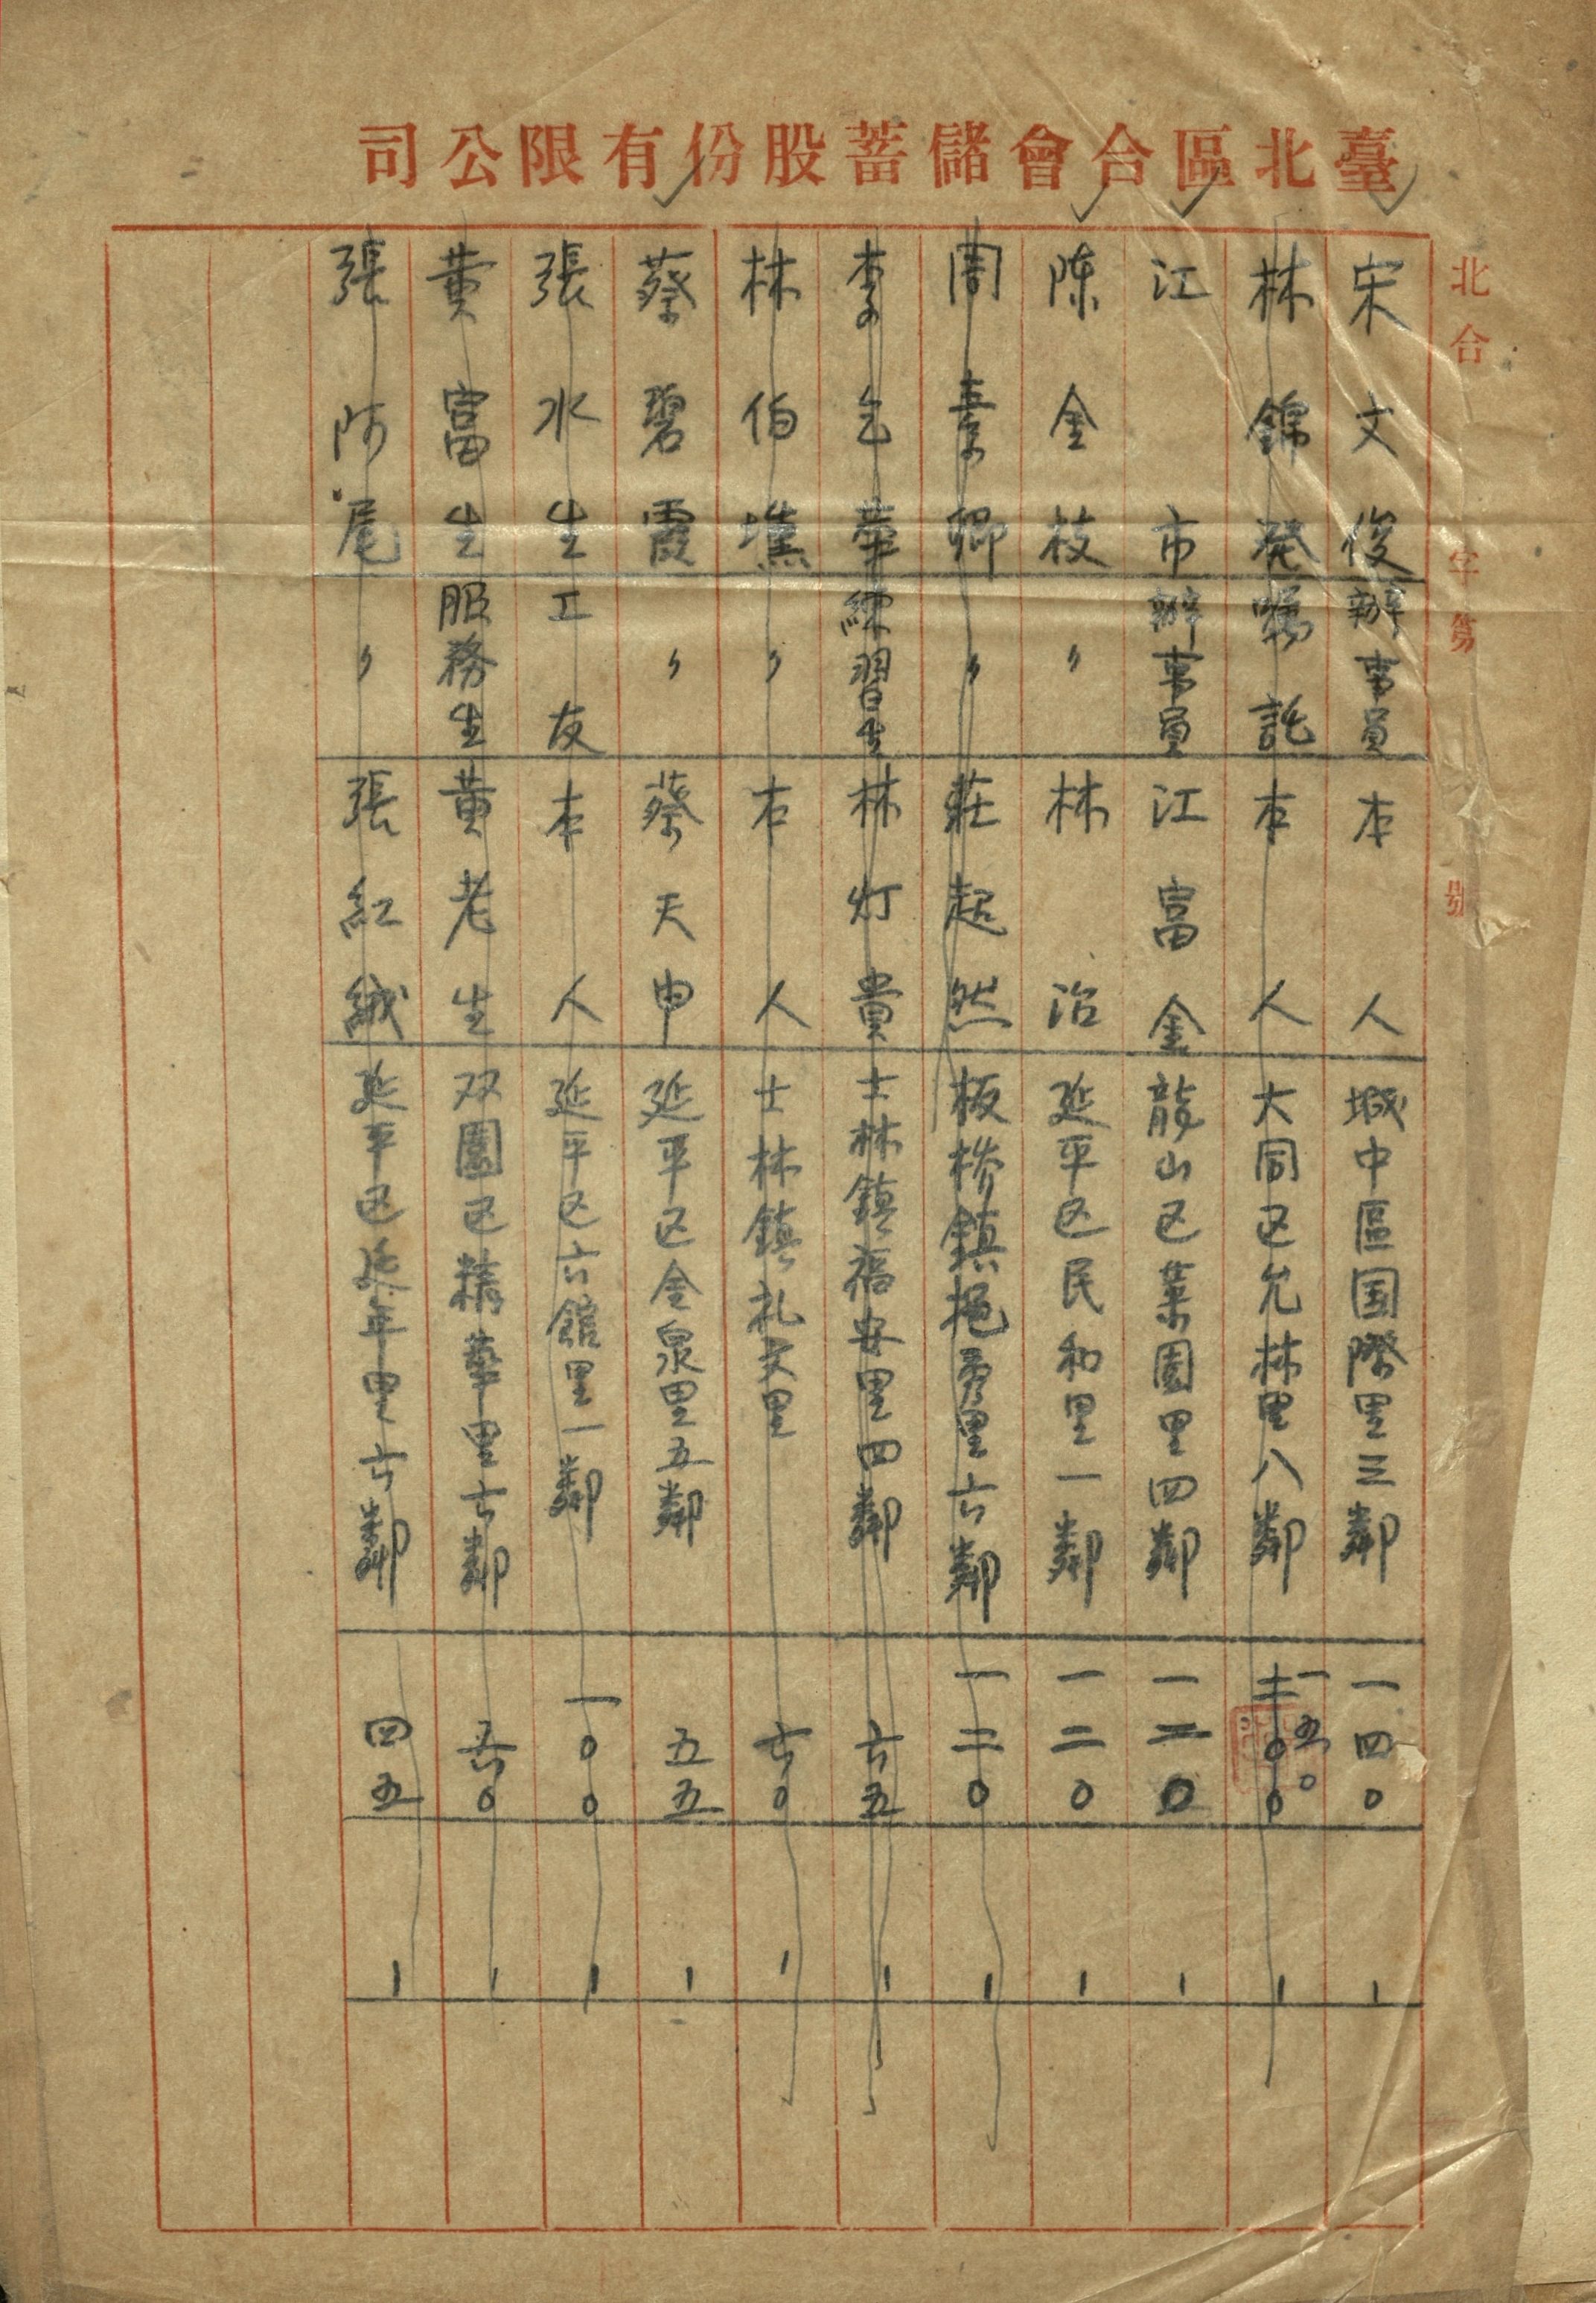 臺北區合會儲蓄股份有限公司
北合 字第 號
宋文俊 辦事員 本人 城中區国際里三鄰 一四〇 1
林錦発 嘱託 本人 大同区允林里八鄰 一五〇 二〇〇 1
江市 辦事員 江富金 龍山区菜園里四鄰 一二〇 1
陳金枝 〃 林治 延平区民和里一鄰 一二〇 1
周素卿 〃 莊起然 板桥鎮挹秀里六鄰 一二〇 1
李乞華 練習生 林灯貴 士林鎮福安里四鄰 六五 1
林伯 〃 本人 士林鎮礼文里 七〇 1
蔡碧霞 〃 蔡天申 延平区金泉里五鄰 五五 1
張水生 工友 本人 延平区六舘里一鄰 一〇〇 1
黄富生 服務生 黄老生 双園区精華里七鄰 〇 1
張阿尾 〃 張紅絨 延平区延年里六鄰 四五 1